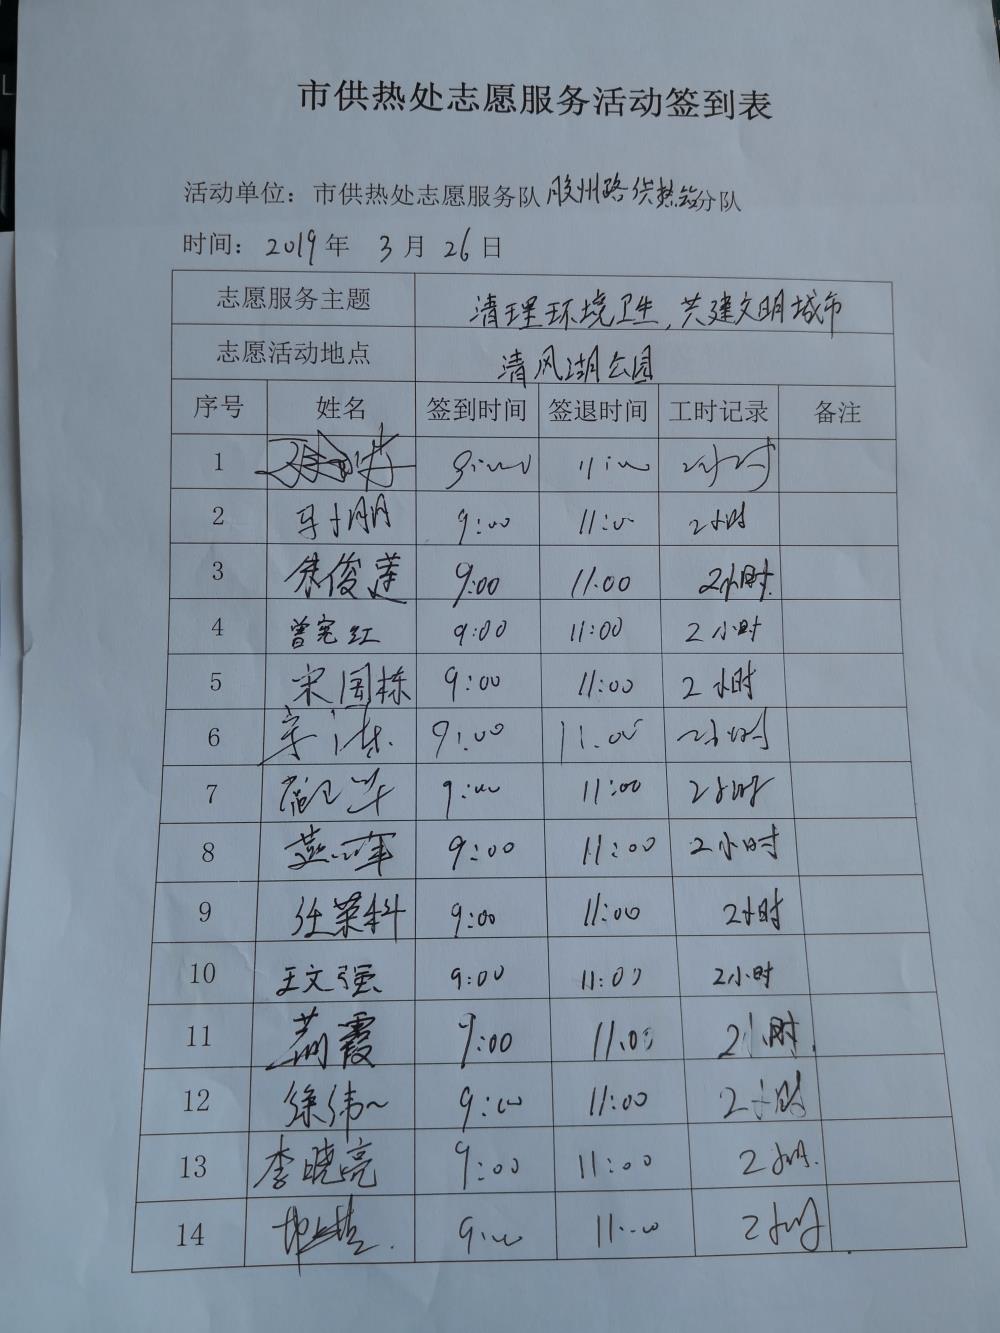 市供热处志愿服务活动签到表
活动单位：市供热处志愿服务队胶州路供热站分队
时间：2019年 3月 26日
志愿服务主题 清理环境卫生，共建文明城市
志愿活动地点 清风湖公园
序号 姓名 签到时间 签退时间 工时记录 备注
1 9:00 11:00 2小时
2 9:00 11:00 2小时
3 朱俊莲 9:00 11:00 2小时
4 曾宪红 9:00 11:00 2小时
5 宋国栋 9:00 11:00 2小时
6 9:00 11:00 2小时
7 9:00 11:00 2小时
8 9:00 11:00 2小时
9 任荣科 9:00 11:00 2小时
10 王文强 9:00 11:00 2小时
11 霞 9:00 11:00 2小时
12 徐伟 9:00 11:00 2小时
13 李晓亮 9:00 11:00 2小时
14 9:00 11:00 2小时